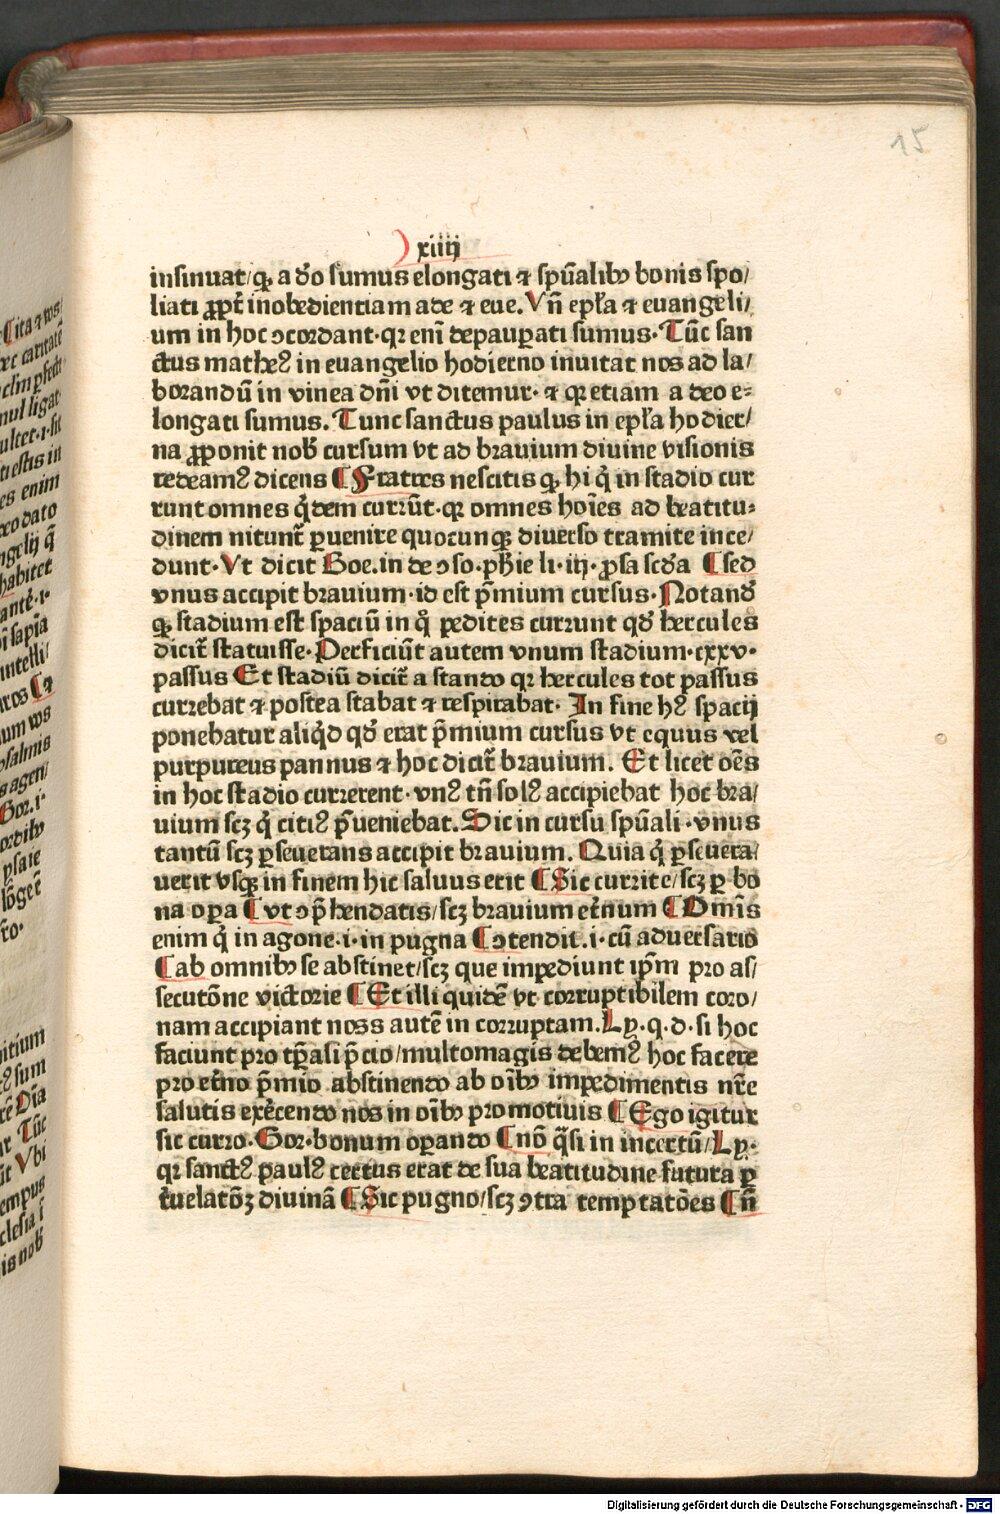 15
xiiij
insinuat/qꝫ a dō sumus elongati ⁊ spūalibꝰ bonis spo/
liati ꝓpt̄ inobedientiam ade ⁊ eue. Vn̄ epl̄a ⁊ euangeli/
um in hoc ꝯcordant·qꝛ eni͂ depauꝑati sumus· Tūc san
ctus matheꝰ in euangelio hodierno inuitat nos ad la/
borandū in vinea dn̄i vt ditemur· ⁊ qꝛ etiam a deo e⸗
longati sumus. Tunc sanctus paulus in epl̄a hodier/
na ꝓponit nob̄ cursum vt ad brauium diuine visionis
redeamꝰ dicens ¶ Fratres nescitis qꝫ hi q̇ in stadio cur
runt omnes q̇dem currūt·qꝛ omnes hoīes ad beatitu⸗
dinem nitunt̄ ꝑuenire quocunqꝫ diuerso tramite ince/
dunt· Vt dicit Boe. in de ꝯso. ph̄ie li·iij·ꝓsa scd̄a ¶ sed
vnus accipit brauium·id est p̄mium cursus· Notand̄
qꝫ stadium est spaciū in q̊ pedites currunt qd̄ hercules
dicit̄ statuisse· Perficiūt autem vnum stadium·cxxv·
passus Et stadiū dicit̄ a stando qꝛ hercules tot passus
currebat ⁊ postea stabat ⁊ respirabat· In fine hꝰ spacij
ponebatur aliq̇d qd̄ erat p̄mium cursus vt equus vel
purpureus pannus ⁊ hoc dicit̄ brauium. Et licet oēs
in hoc stadio currerent·vnꝰ tn̄ solꝰ accipiebat hoc bra/
uium scꝫ q̇ citiꝰ p̄ueniebat. Sic in cursu spūali·vnus
tantū scꝫ ꝑseuerans accipit brauium. Quia q̇ ꝑseuera/
uerit vsqꝫ in finem hic saluus erit ¶ Sic currite/scꝫ ꝑ bo
na oꝑa ¶ vt ꝯp̄hendatis/scꝫ brauium et̄num ¶ Omīs
enim q̇ in agone.i·in pugna ¶ ꝯtendit.i·cū aduersario
¶ ab omnibꝰ se abstinet/scꝫ que impediunt ip̄m pro as/
secutōne victorie ¶ Et illi quidē vt corruptibilem coro/
nam accipiant noss autē in corruptam. Ly·q·d·si hoc
faciunt pro tp̄ali p̄cio/multomagis debemꝰ hoc facere
pro et̄no p̄mio abstinendo ab oībꝰ impedimentis nr̄e
salutis exēcendo nos in oībꝰ promotiuis ¶ Ego igitur
sic curro·Gor·bonum oꝑando ¶ nō q̄si in incertū/Ly·
qꝛ sanctꝰ paulꝰ certus erat de sua beatitudine futura ꝑ
r̄uelatōꝫ diuinā ¶ Sic pugno/scꝫ ꝯtra temptatōes ¶ n̄
Digitalisierung gefördert durch die Deutsche Forschungsgemeinschaft · DFG